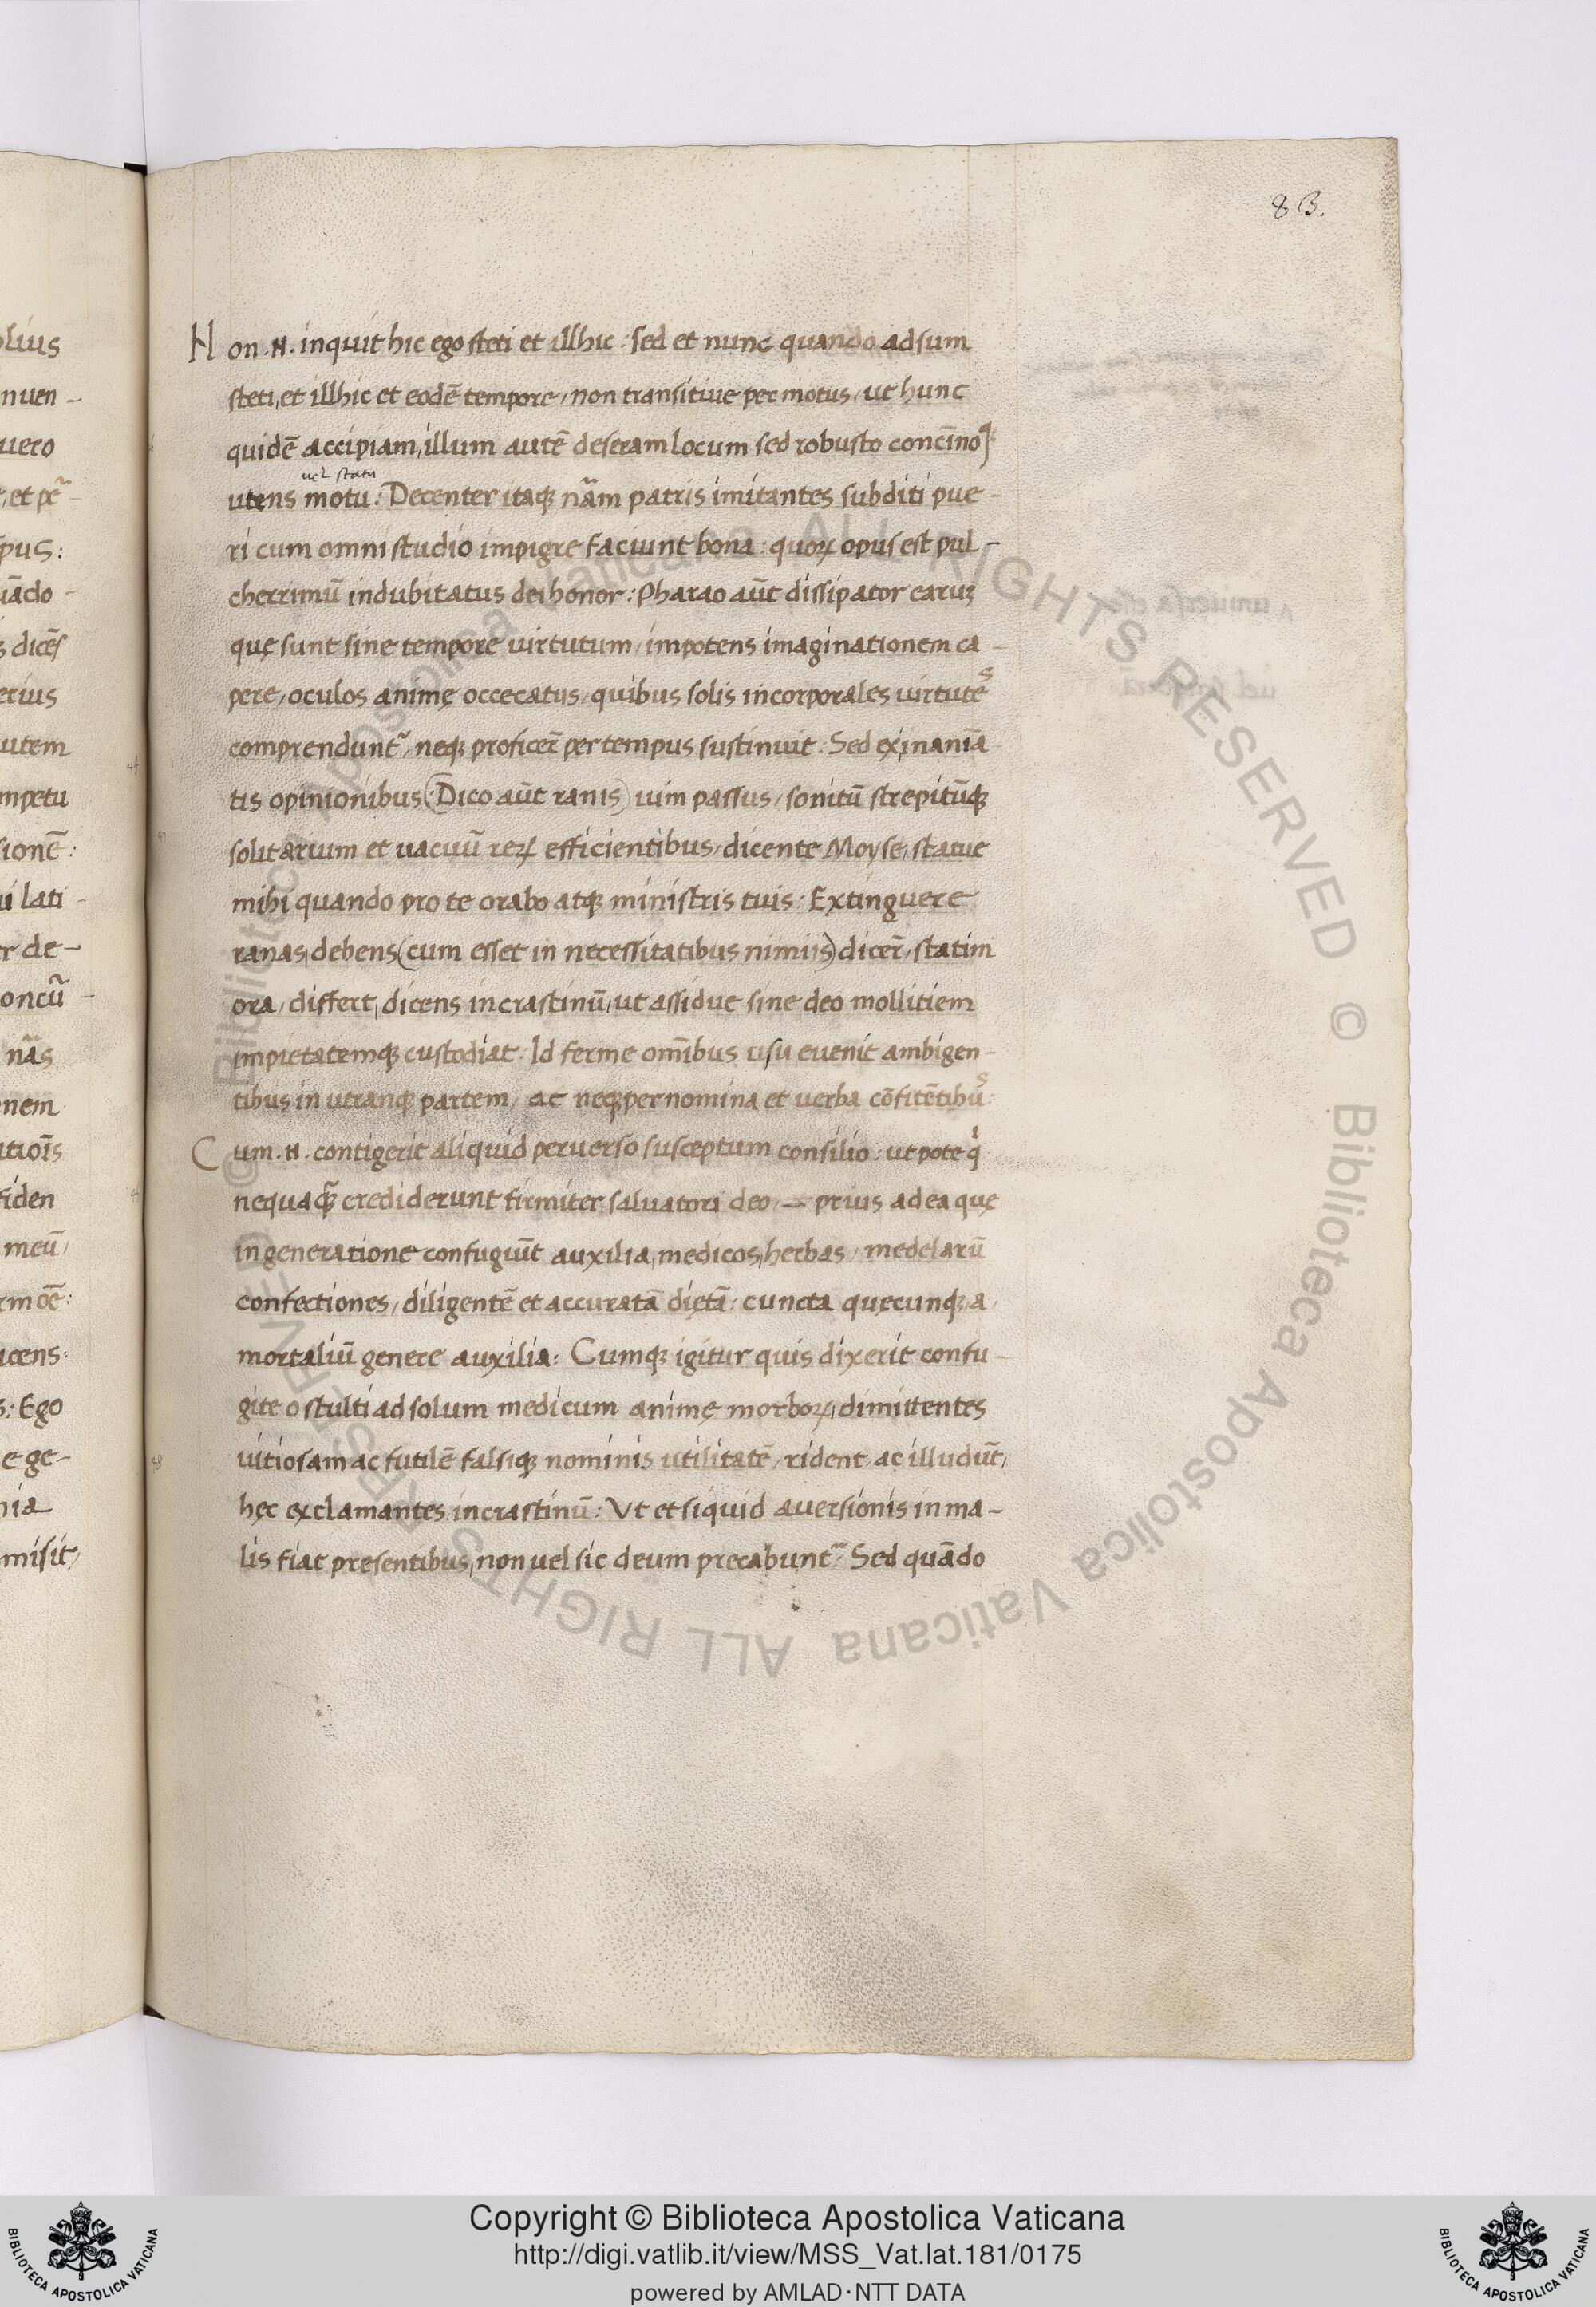 83.
Non .N. inquit hic ego steti et illhic : sed et nunc quando adsum
steti, et illhic et eodē tempore, non transitive per motus, ut hunc
quidē accipiam, illum autē deseram locum sed robusto concīno q̄
vel statu
utens motu : Decenter itaq; nr̄am patris imitantes subditi pue-
ri cum omni studio impigre faciunt bona : quoꝝ opus est pul-
cherrimū indubitatus dei honor : Pharao aūt dissipator earuꝫ
quę sunt sine tempore virtutum, impotens imaginationem ca-
pere, oculos animę occecatus, quibus solis incorporales virtutes
comprendunt᷑, neq; proficer̄ per tempus sustinuit : Sed exinaniā
tis opinionibus (Dico aūt ranis) uim passus, sonitū strepitūq;
solitarium et vacuū reꝝ efficientibus, dicente Moyse, statue
mihi quando pro te orabo atq; ministris tuis : Extinguere
ranas, debens (cum esset in necessitatibus nimijs) dicer̄, statim
ora, differt, dicens in crastinū, ut assidue sine deo mollitiem
impietatemq; custodiat : Id ferme om̄ibus usu evenit ambigen-
tibus in utranq; partem, ac neq; per nomina et verba cōfitētibus :
Cum .N. contigerit aliquid perverso susceptum consilio : ut pote qi
nequaq̄ crediderunt firmiter salvatori deo, — prius ad ea quę
in generatione confugiūt auxilia, medicos, herbas, medelarū
confectiones, diligentē et accuratā dietā : cuncta quęcunq; a,
mortaliū genere auxilia : Cumq; igitur quis dixerit confu-
gite o stulti ad solum medicum animę morboꝝ, dimittentes
vitiosam ac futilē falsiq; nominis utilitatē, rident, ac illudūt,
hęc exclamantes in crastinū : Ut et siquid aversionis in ma-
lis fiat presentibus, non vel sic deum precabunt᷑ : Sed quādo
Copyright © Biblioteca Apostolica Vaticana
http://digi.vatlib.it/view/MSS_Vat.lat.181/0175
powered by AMLAD·NTT DATA